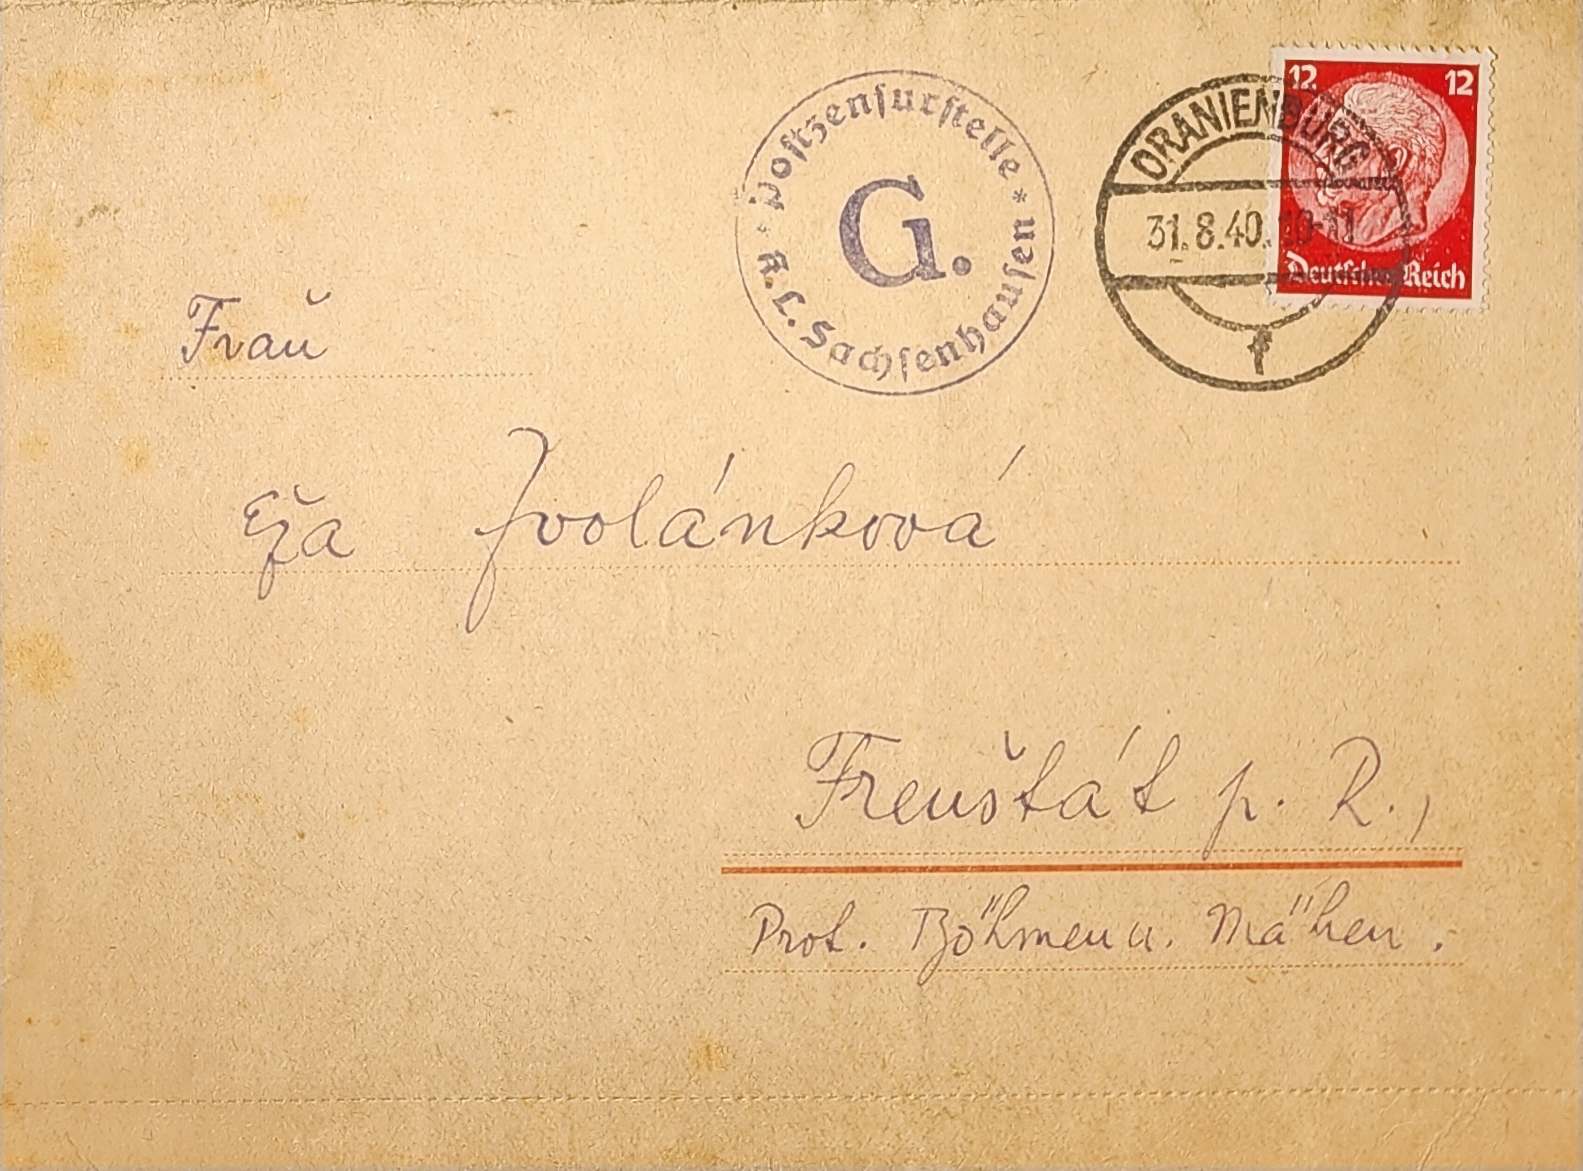 Postzensurstelle
* K.L. Sachsenhausen *
G.
ORANIENBURG
31.8.40. 10-11
f
12 12
Deutsches Reich
Frau
Eža Zvolánková
Frenštát p. R.,
Prot. Böhmen u. Mähren.